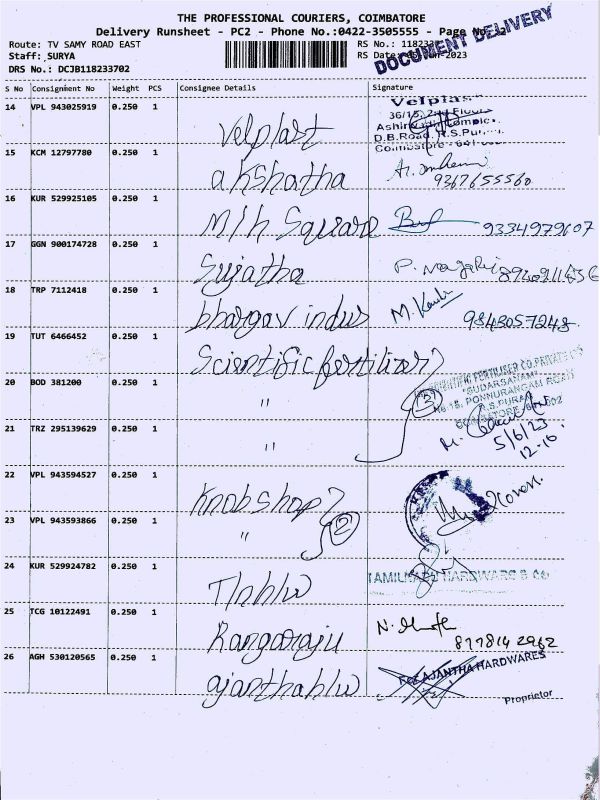 THE PROFESSIONAL COURIERS, COIMBATORE
Delivery Runsheet - PC2 - Phone No.:0422-3505555 - Page No.
DOCUMENT DELIVERY
Route: TV SAMY ROAD EAST
Staff: SURYA
DRS No.: DCJB118233702
RS No.:
RS Date: 2023
S No Consignment No Weight PCS Consignee Details Signature
14 VPL 943025919 0.250 1 Velplast
Velplas
36/15, 2nd Floor
D.B.Road, R.S.Pur
Coimbatore - 641
15 KCM 12797780 0.250 1 akshatha
9367655560
16 KUR 529925105 0.250 1 M/h Square 9334979607
17 GGN 900174728 0.250 1 Sujatha P.
18 TRP 7112418 0.250 1 bhargav indus M. 9843057248
19 TUT 6466452 0.250 1 Scientific fertilizer
SCIENTIFIC FERTILISER CO PRIVATE LTD
"SUDARSANAM"
No 18, PONNURANGAM ROAD
R.S.PURAM
COIMBATORE
20 BOD 381200 0.250 1 " 3
21 TRZ 295139629 0.250 1 " M.
5/6/23
12.10.
22 VPL 943594527 0.250 1 Knobshop
23 VPL 943593866 0.250 1 " 2
24 KUR 529924782 0.250 1 Tnhlw
TAMILNADU HARDWARE & Co
25 TCG 10122491 0.250 1 Rangaraju N.
8778142962
26 AGH 530120565 0.250 1 ajanthahlw
For AJANTHA HARDWARES
Proprietor